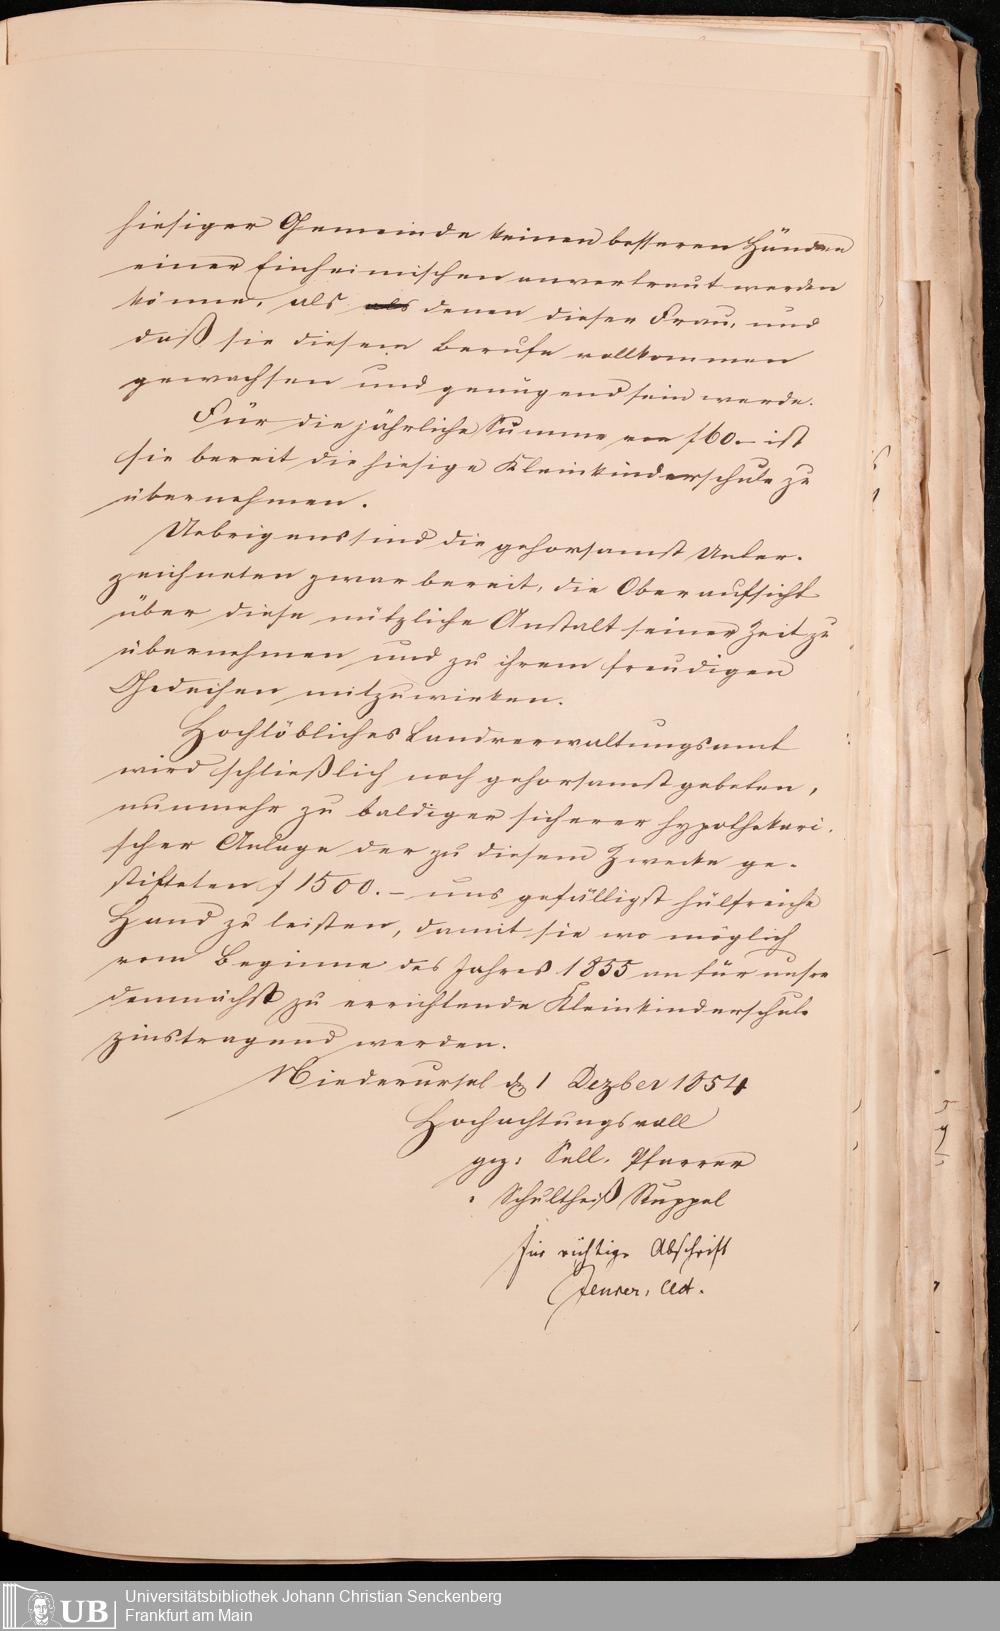 hiesiger Gemeinde keinen besseren Händen
einer Einheimischen anvertraut werden
könne, als als denen dieser Frau, und
daß sie diesem Berufe vollkommen
gewachsen und genügend sein werde.
Für die jährliche Summe von f60.- ist
sie bereit die hiesige Kleinkinderschule zu
übernehmen.
Uebrigens sind die gehorsamst Unter-
zeichneten zwar bereit, die Oberaufsicht
über diese nützliche Anstalt seiner Zeit zu
übernehmen und zu ihrem freudigen
Gedeihen mitzuwirken.
Hochlöbliches Landverwaltungsamt
wird schließlich noch gehorsamst gebeten,
nunmehr zu baldiger sicherer hypothekari-
scher Anlage der zu diesem Zwecke ge-
stifteten f 1500.- uns gefälligst hülfreiche
Hand zu leisten, damit sie wo möglich
vom Beginne des Jahres 1855 an für unsre
demnächst zu errichtende Kleinkinderschule
zinstragend werden.
Niederursel d 1 Dezber 1854
Hochachtungsvoll
gez: Sell. Pfarrer
" Schultheiß Ruppel
für richtige Abschrift
Act.
Universitätsbibliothek Johann Christian Senckenberg
Frankfurt am Main
UB